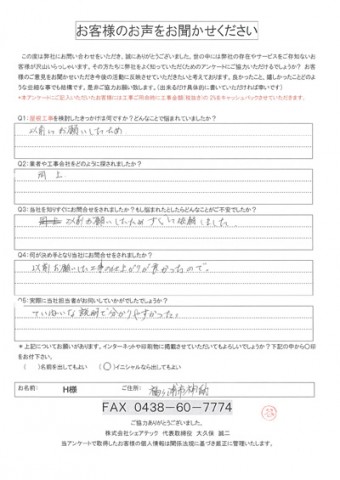 お客様のお声をお聞かせください
この度は弊社にお問い合わせをいただき、誠にありがとうございました。世の中には弊社の存在やサービスをご存知ないお
客様が沢山いらっしゃいます。その方たちに弊社をよく知っていただくためのアンケートにご協力いただけるでしょうか? お客
様のご意見をお聞かせいただき今後の活動に反映させていただきたいと考えております。良かったこと、嬉しかったことどのよ
うな些細な事でも結構です。是非ご協力お願い致します。(出来るだけ具体的に書いていただければ幸いです)
*本アンケートにご記入いただいたお客様には工事ご用命時に工事金額(税抜き)の2%をキャッシュバックさせていただきます。
Q1:
を検討したきっかけは何ですか?どんなことで悩まれていましたか?
以前にお願いしたため
Q2:業者や工事会社をどのように探されましたか?
同上
Q3:当社を知りすぐにお問合せをされましたか?もし悩まれたとしたらどんなことがご不安でしたか?
以前お願いしたためすぐに依頼しました。
Q4:何が決め手となり当社にお問合せをされましたか?
以前お願いした工事の仕上がりが良かったので。
Q5:実際に当社担当者がお伺いしていかがでしたでしょうか?
ていねいな説明で分かりやすかった。
*上記についてお願いがあります。インターネットや印刷物に掲載させていただいてもよろしいでしょうか?下記の中から〇印
をお付下さい。
( )名前を出してもよい (〇)イニシャルなら出してもよい
お名前: H様 ご住所:
FAX 0438-60-7774
ご協力ありがとうございました。
株式会社シェアテック 代表取締役 大久保 誠二
当アンケートで取得したお客様の個人情報は関係法規に基づき厳正に管理いたします。